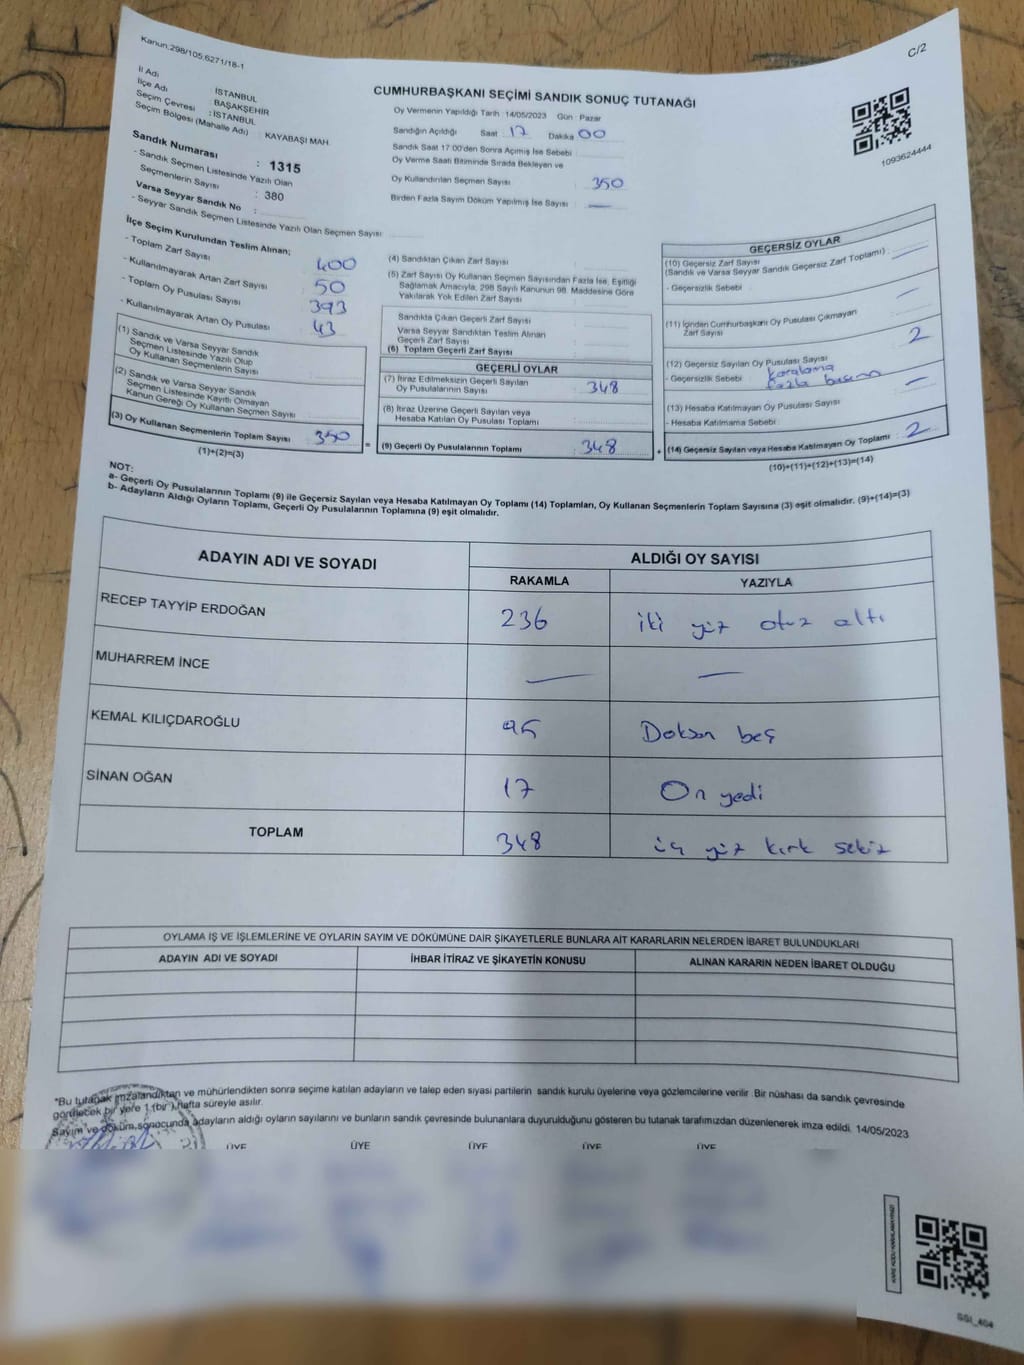 Kanun:298/105,6271/18-1
C/2
CUMHURBAŞKANI SEÇİMİ SANDIK SONUÇ TUTANAĞI
İl Adı : İSTANBUL
İlçe Adı : BAŞAKŞEHİR
Seçim Çevresi : İSTANBUL
Seçim Bölgesi (Mahalle Adı) : KAYABAŞI MAH.
Sandık Numarası : 1315
- Sandık Seçmen Listesinde Yazılı Olan
Seçmenlerin Sayısı : 380
Varsa Seyyar Sandık No :
- Seyyar Sandık Seçmen Listesinde Yazılı Olan Seçmen Sayısı
Oy Vermenin Yapıldığı Tarih 14/05/2023 Gün : Pazar
Sandığın Açıldığı Saat : 17 Dakika 00
Sandık Saat 17:00'den Sonra Açımış İse Sebebi
Oy Verme Saati Bitiminde Sırada Bekleyen ve
Oy Kullandırılan Seçmen Sayısı : 350
Birden Fazla Sayım Döküm Yapılmış İse Sayısı : —
1093624444
İlçe Seçim Kurulundan Teslim Alınan;
- Toplam Zarf Sayısı : 400
- Kullanılmayarak Artan Zarf Sayısı : 50
- Toplam Oy Pusulası Sayısı : 393
- Kullanılmayarak Artan Oy Pusulası : 43
(1) Sandık ve Varsa Seyyar Sandık
Seçmen Listesinde Yazılı Olup
Oy Kullanan Seçmenlerin Sayısı :
(2) Sandık ve Varsa Seyyar Sandık
Seçmen Listesinde Kayıtlı Olmayan
Kanun Gereği Oy Kullanan Seçmen Sayısı :
(3) Oy Kullanan Seçmenlerin Toplam Sayısı : 350
(1)+(2)=(3)
(4) Sandıktan Çıkan Zarf Sayısı :
(5) Zarf Sayısı Oy Kullanan Seçmen Sayısından Fazla İse, Eşitliği
Sağlamak Amacıyla, 298 Sayılı Kanunun 98. Maddesine Göre
Yakılarak Yok Edilen Zarf Sayısı :
Sandıkta Çıkan Geçerli Zarf Sayısı :
Varsa Seyyar Sandıktan Teslim Alınan
Geçerli Zarf Sayısı :
(6) Toplam Geçerli Zarf Sayısı :
GEÇERLİ OYLAR
(7) İtiraz Edilmeksizin Geçerli Sayılan
Oy Pusulalarının Sayısı : 348
(8) İtiraz Üzerine Geçerli Sayılan veya
Hesaba Katılan Oy Pusulası Toplamı :
(9) Geçerli Oy Pusulalarının Toplamı : 348
GEÇERSİZ OYLAR
(10) Geçersiz Zarf Sayısı
(Sandık ve Varsa Seyyar Sandık Geçersiz Zarf Toplamı) : —
- Geçersizlik Sebebi :
(11) İçinden Cumhurbaşkanı Oy Pusulası Çıkmayan
Zarf Sayısı : —
(12) Geçersiz Sayılan Oy Pusulası Sayısı : 2
- Geçersizlik Sebebi : karalama
fazla basım
(13) Hesaba Katılmayan Oy Pusulası Sayısı : —
- Hesaba Katılmama Sebebi :
(14) Geçersiz Sayılan veya Hesaba Katılmayan Oy Toplamı : 2
(10)+(11)+(12)+(13)=(14)
NOT:
a- Geçerli Oy Pusulalarının Toplamı (9) ile Geçersiz Sayılan veya Hesaba Katılmayan Oy Toplamı (14) Toplamları, Oy Kullanan Seçmenlerin Toplam Sayısına (3) eşit olmalıdır. (9)+(14)=(3)
b- Adayların Aldığı Oyların Toplamı, Geçerli Oy Pusulalarının Toplamına (9) eşit olmalıdır.
ADAYIN ADI VE SOYADI ALDIĞI OY SAYISI
RAKAMLA YAZIYLA
RECEP TAYYİP ERDOĞAN 236 iki yüz otuz altı
MUHARREM İNCE — —
KEMAL KILIÇDAROĞLU 95 Doksan beş
SİNAN OĞAN 17 On yedi
TOPLAM 348 üç yüz kırk sekiz
OYLAMA İŞ VE İŞLEMLERİNE VE OYLARIN SAYIM VE DÖKÜMÜNE DAİR ŞİKAYETLERLE BUNLARA AİT KARARLARIN NELERDEN İBARET BULUNDUKLARI
ADAYIN ADI VE SOYADI İHBAR İTİRAZ VE ŞİKAYETİN KONUSU ALINAN KARARIN NEDEN İBARET OLDUĞU
*Bu tutanak imzalandıktan ve mühürlendikten sonra seçime katılan adayların ve talep eden siyasi partilerin sandık kurulu üyelerine veya gözlemcilerine verilir. Bir nüshası da sandık çevresinde
görülecek bir yere 1 (bir) hafta süreyle asılır.
Sayım ve döküm sonucunda adayların aldığı oyların sayılarını ve bunların sandık çevresinde bulunanlara duyurulduğunu gösteren bu tutanak tarafımızdan düzenlenerek imza edildi. 14/05/2023
ÜYE ÜYE ÜYE ÜYE ÜYE
GGI_404